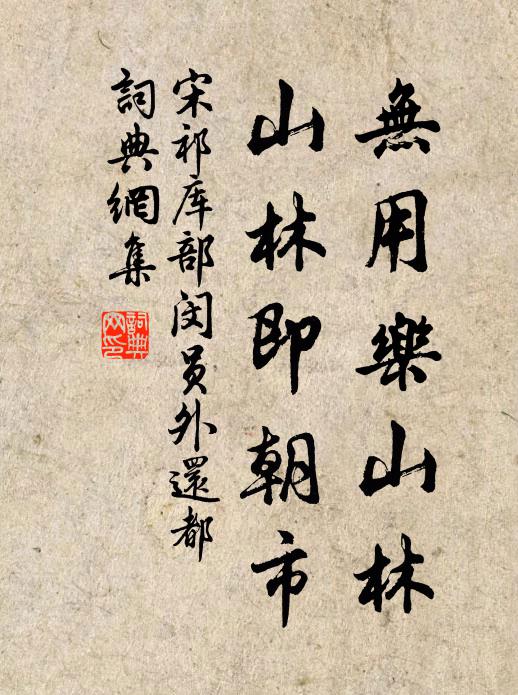 無用樂山林
山林即朝市
宋祁库部闵员外還都
詞典網集
詞典網印